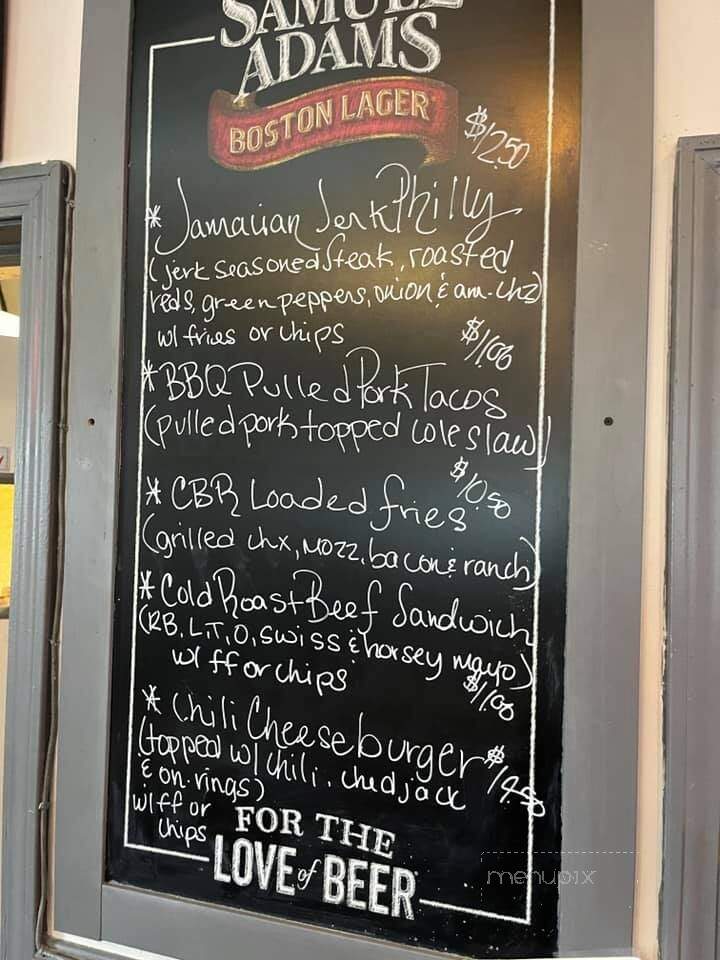 SAMUEL
ADAMS
BOSTON LAGER
$12.50
* Jamaican Jerk Philly
(jerk seasoned steak, roasted
reds, green peppers, onion & am. chz)
w/ fries or chips
$11.00
* BBQ Pulled Pork Tacos
(pulled pork topped coleslaw)
$10.50
* CBR Loaded fries
(grilled chx, mozz, bacon & ranch)
* Cold Roast Beef Sandwich
(RB, L, T, O, swiss & horsey mayo)
w/ ff or chips
$11.00
* Chili Cheeseburger $14.50
(topped w/ chili, ched jack
& on. rings)
w/ ff or
chips
FOR THE
LOVE of BEER
menupix